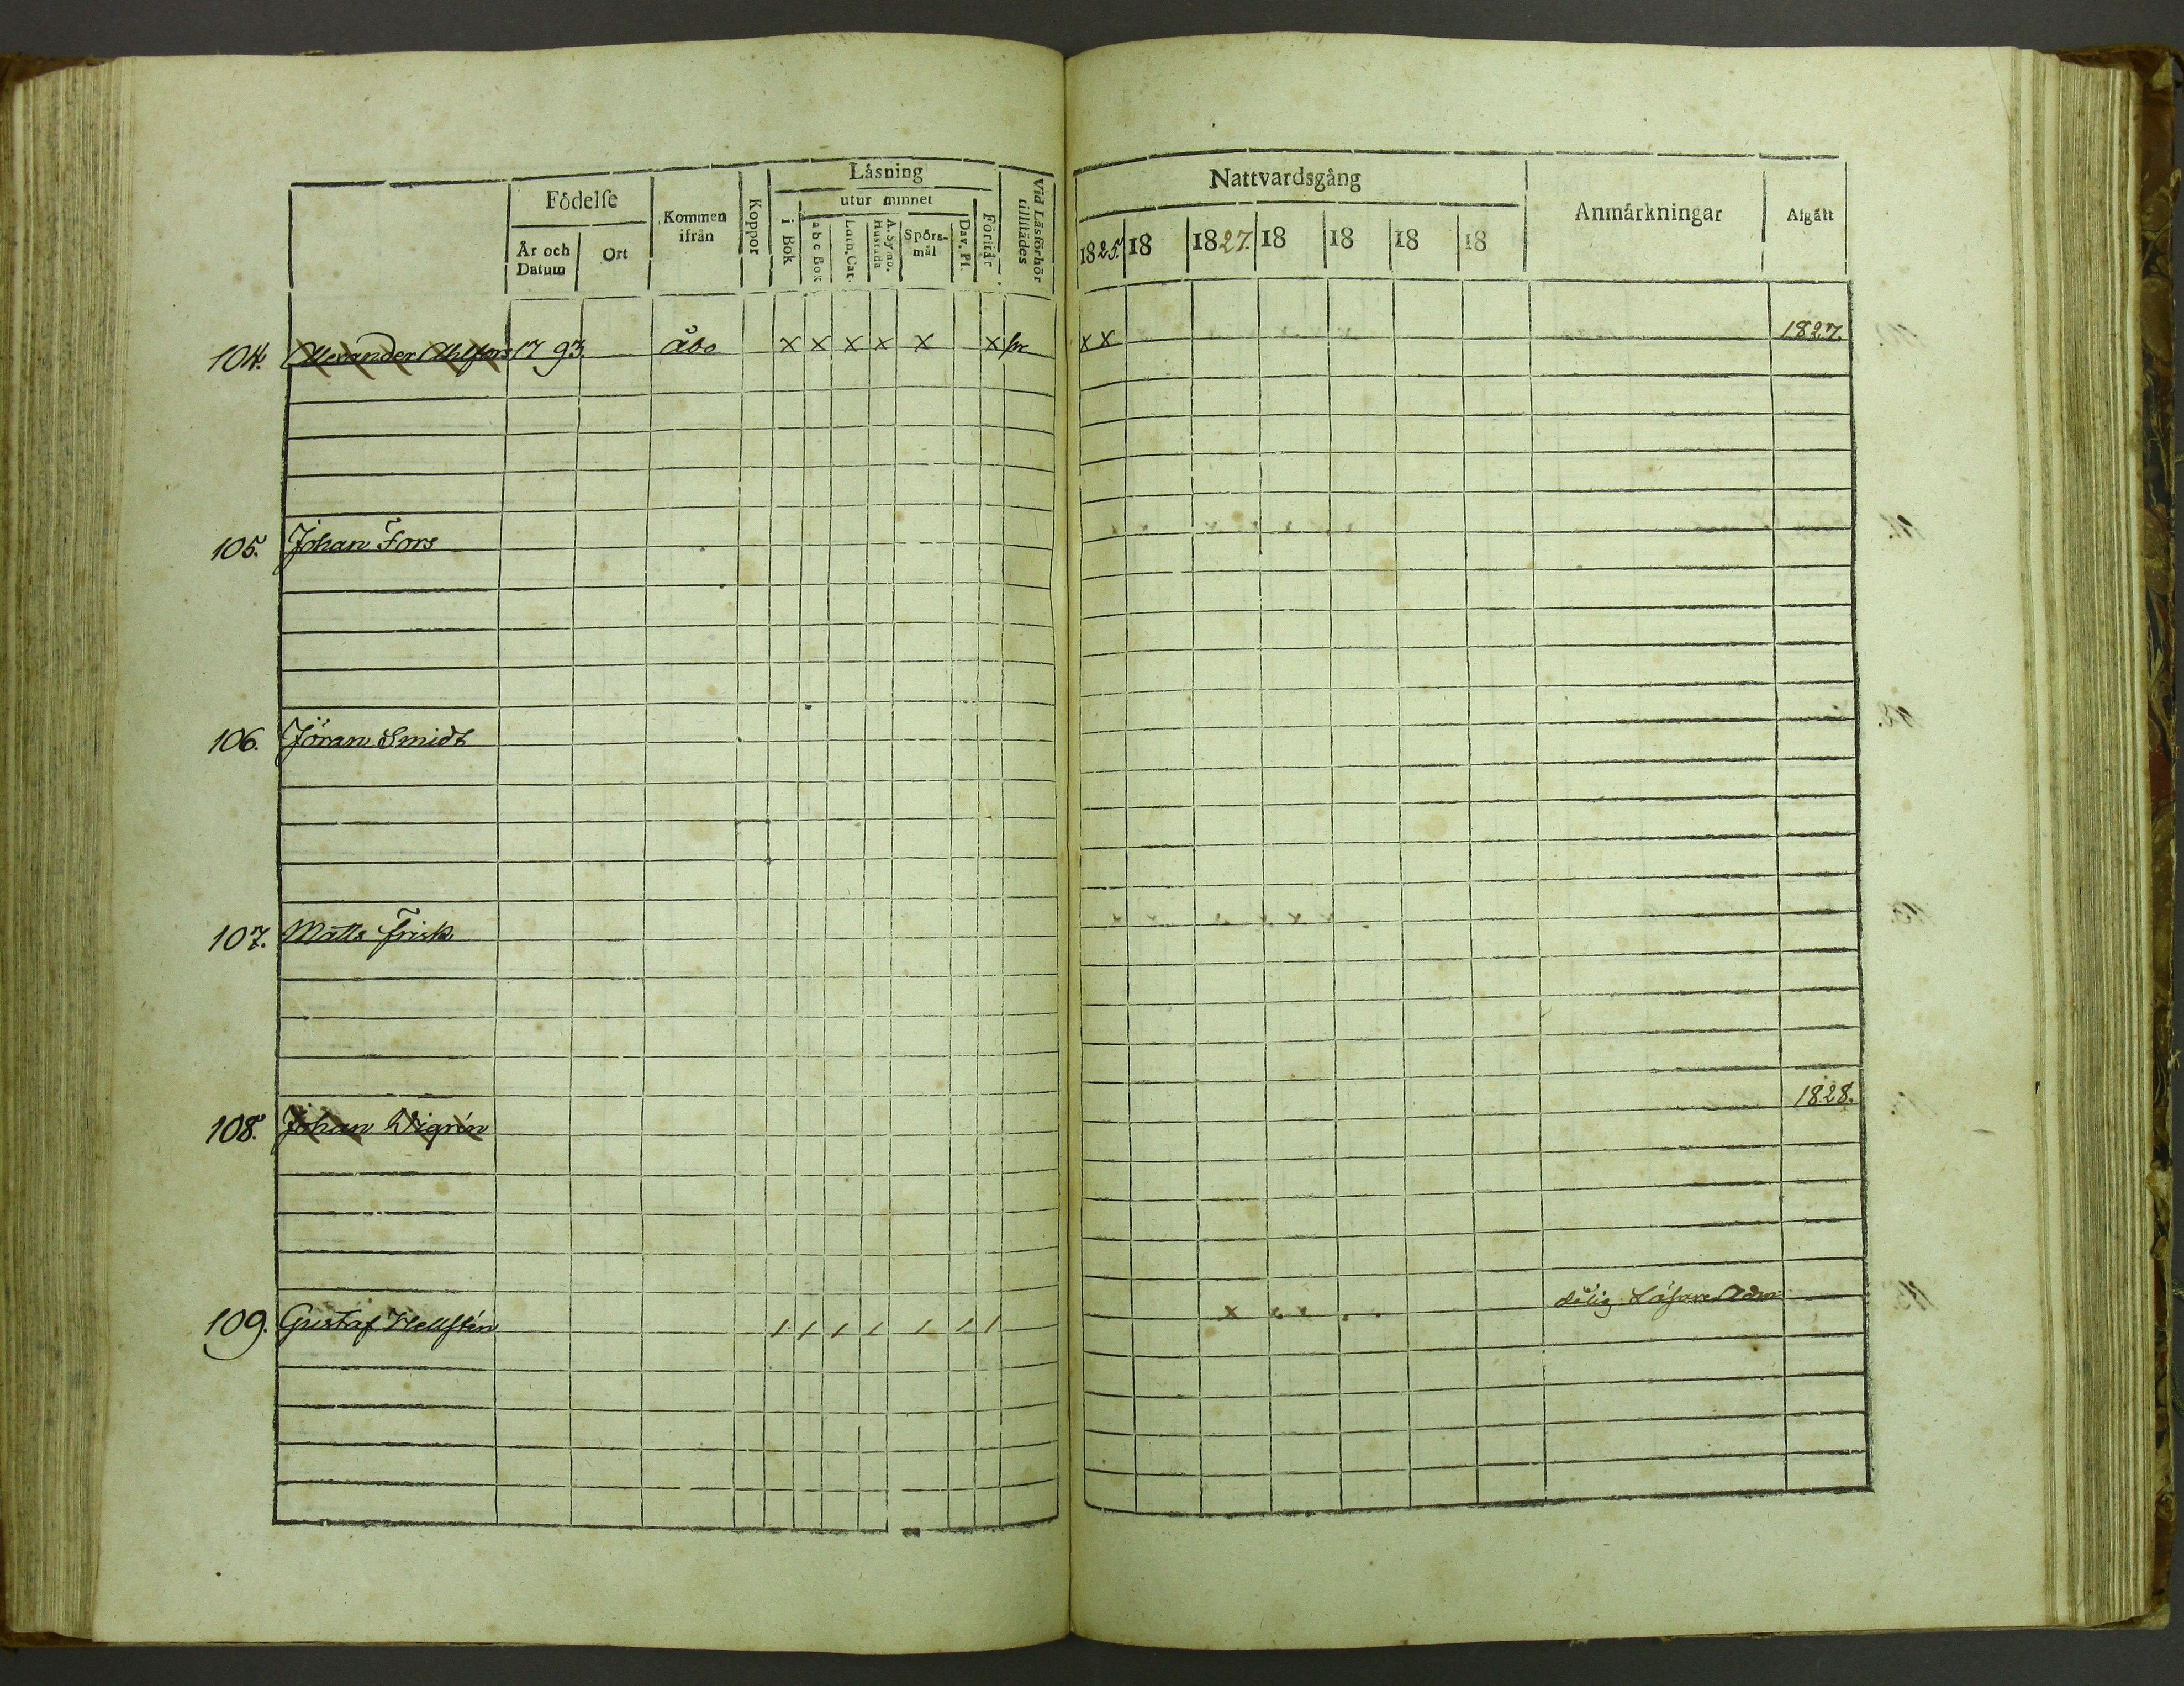 Födelse
År och Datum
Ort
Kommen ifrån
Koppor
Läsning
i Bok
utur minnet
abc Bok
Luth. Cat.
A. Symb. Hustafla
Spörsmål
Dav. Ps.
Förstår
Vid Läsförhör tillstädes
Nattvardsgång
1825. 18 1827. 18 18 18 18
Anmärkningar
Afgått
104. Alexander Ahlfors 1793. Åbo x x x x x x x x 1827.
105. Johan Fors
106. Jöran Smidt
107. Matts Frisk
108. Johan Wigrén 1828.
109. Gustaf Hellstén / / / / / / / x dålig Läsare